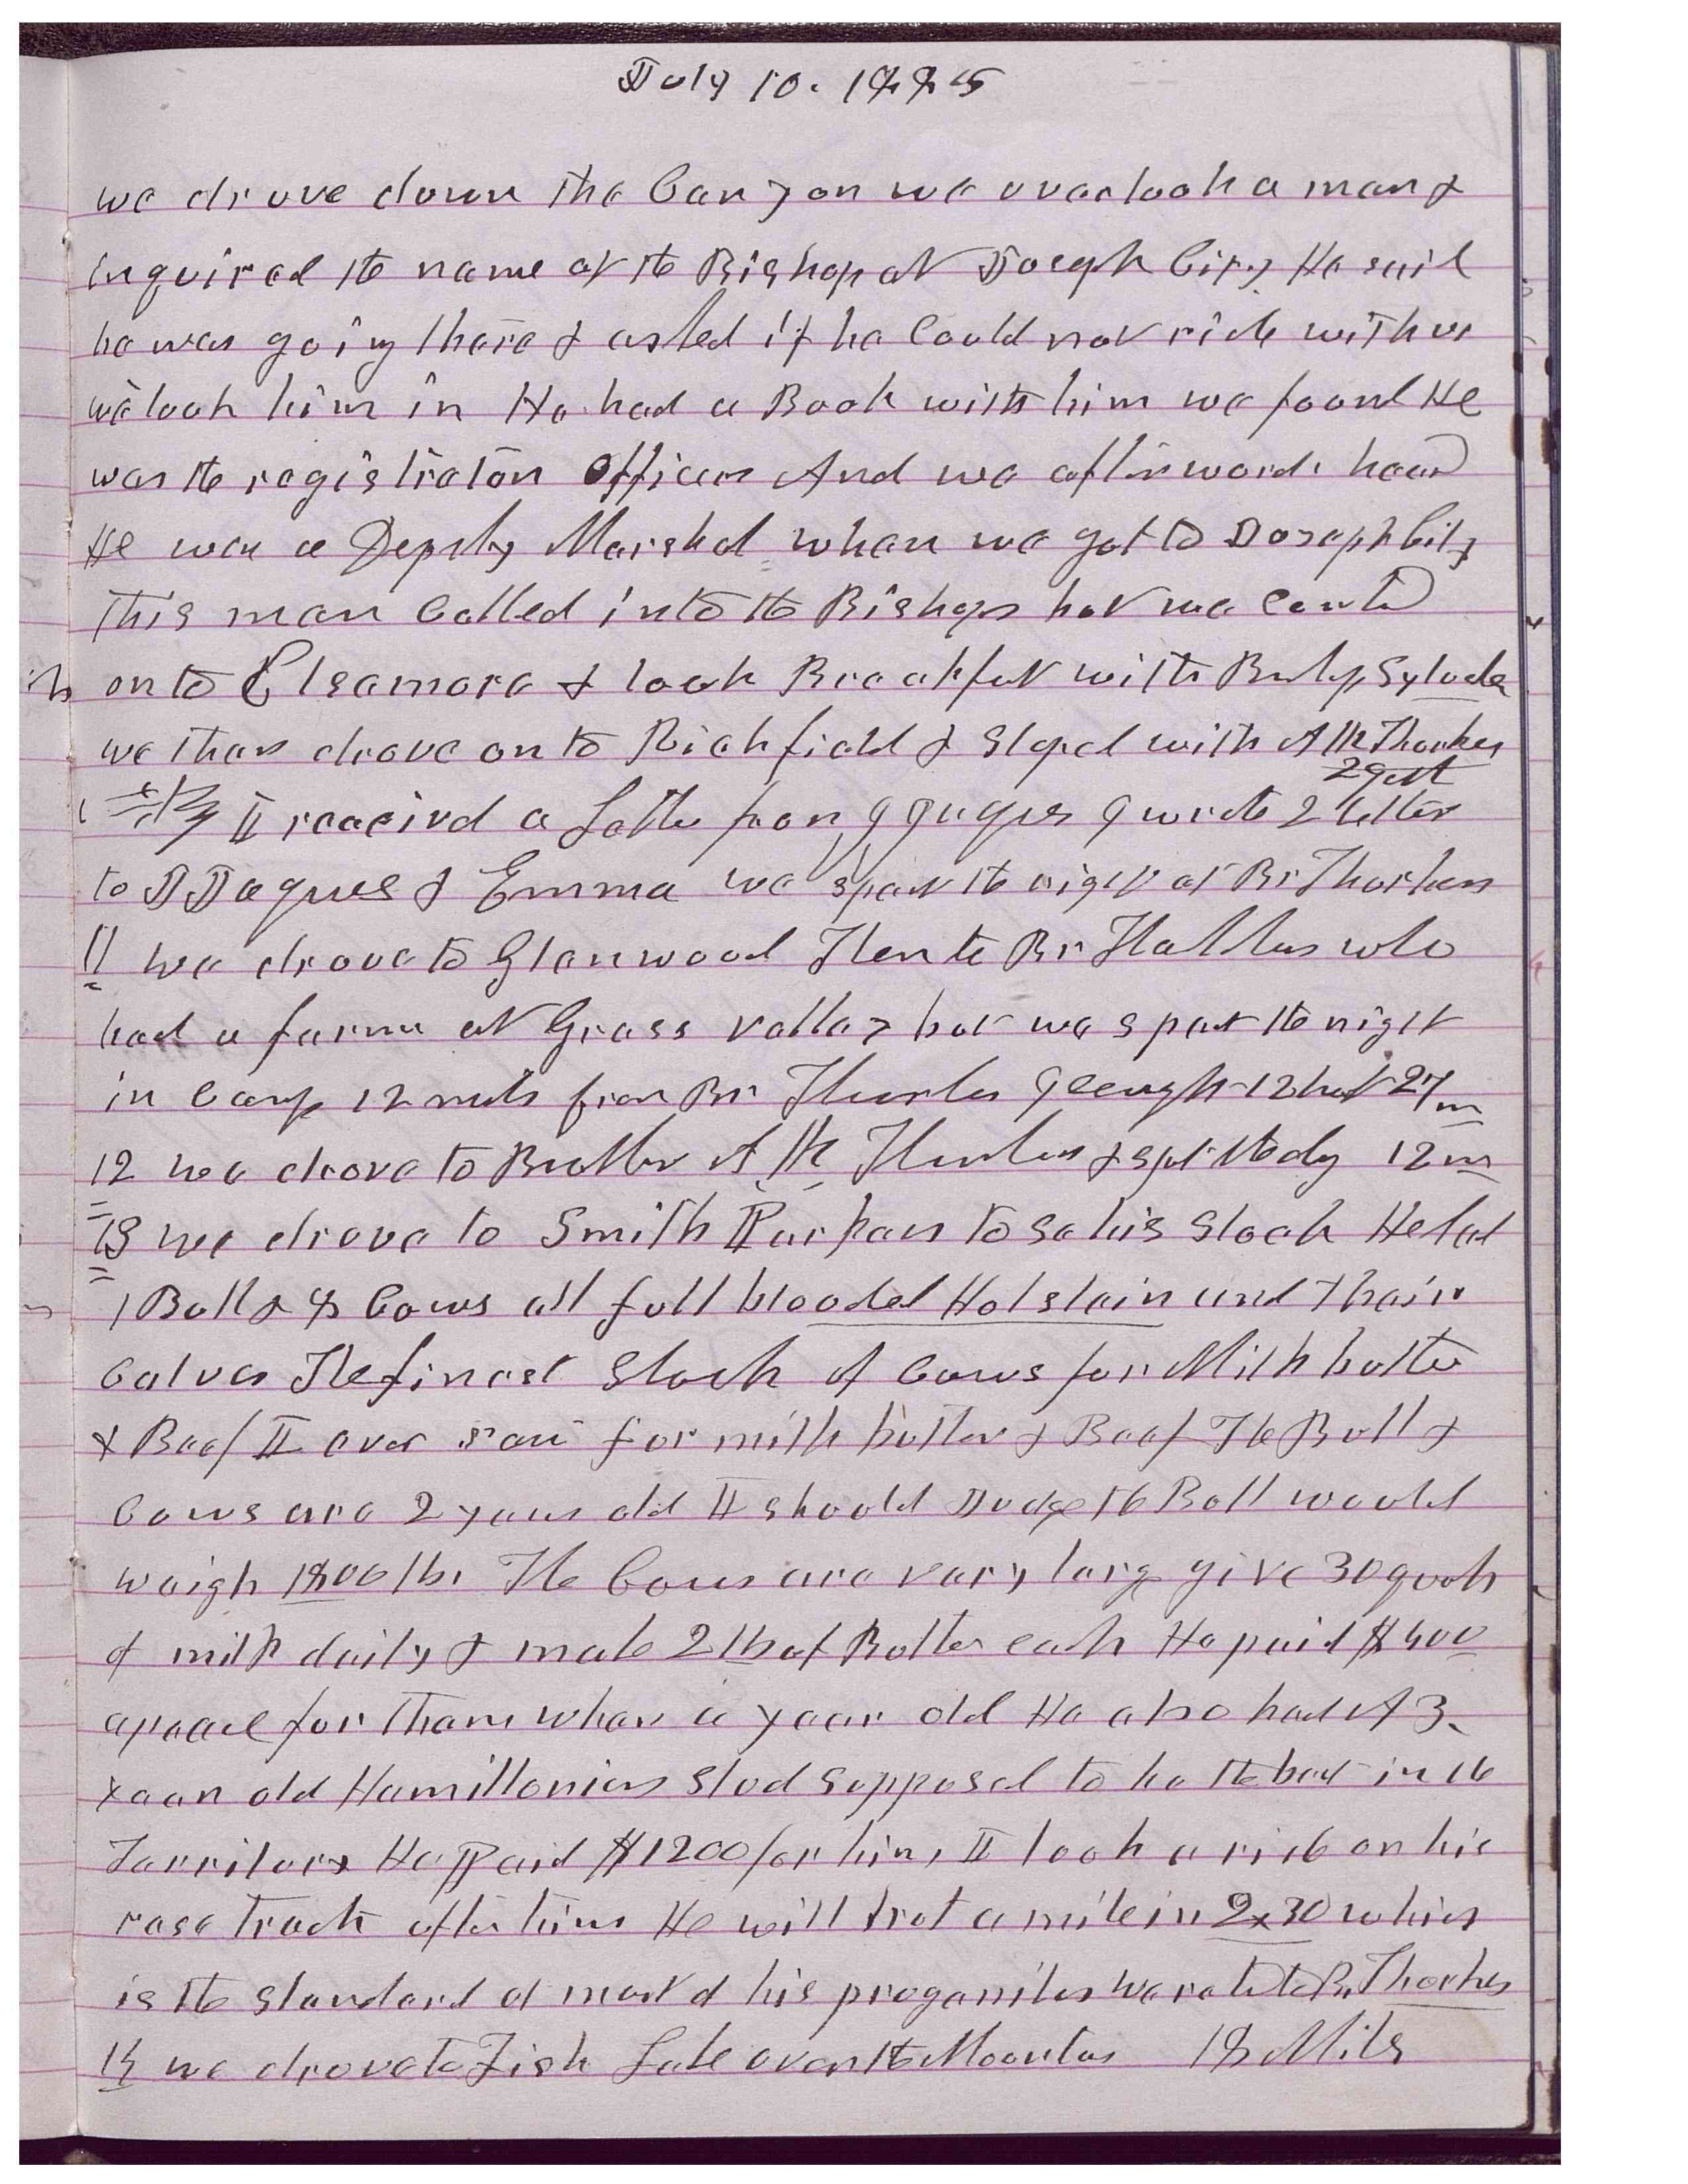 July 10. 1885
we drove down the Canyon we overtook a man &
inquired the name of the Bishop at Joseph City He said
he was going there & asked if he Could not ride with us
we took him in He had a Book with him we found He
was the registration Officer And we afterwords heard
He was a Deputy Marshal when we got to Joseph City
This man Called into the Bishops but we Contd
on to Elsamore & took Breakfast with Bishop Sylvde
we then drove on to Richfield & Stoped with A K Thurber
I received a Letter from J Jaques I wrote 2 letters
to J Jaques & Emma we spent the night at Br Thurbers
11 we drove to Glenwood Thence to Br Thurbers who
had a farm at Grass valley but we spent the night
in Camp 12 miles from Br Thurber I Caught 12 trout 27 m
12 we drove to Brother A K Thurbers & spt the day 12 m
13 we drove to Smith Parkers to se his Stock He had
1 Bull & 8 Cows all full blooded Holstein and their
Calves The finest Stock of Cows for Milk butter
& Beef I ever saw for milk butter & Beef The Bull &
Cows are 2 years old I should Judge the Bull would
weigh 1800 lbs The Cows are very large give 30 quarts
of milk daily & make 2 lb of Butter each He paid $400
apeace for them when a year old He also had A 3
year old Hamiltonian Stud Supposed to be the best in the
Territory He Paid $1200 for him, I took a ride on his
rase track after him He will trot a mile in 2x30 which
is the Standard of most of his progenitors Br Thurber
14 we drove to Fish Lake over the Mountain 18 Mils